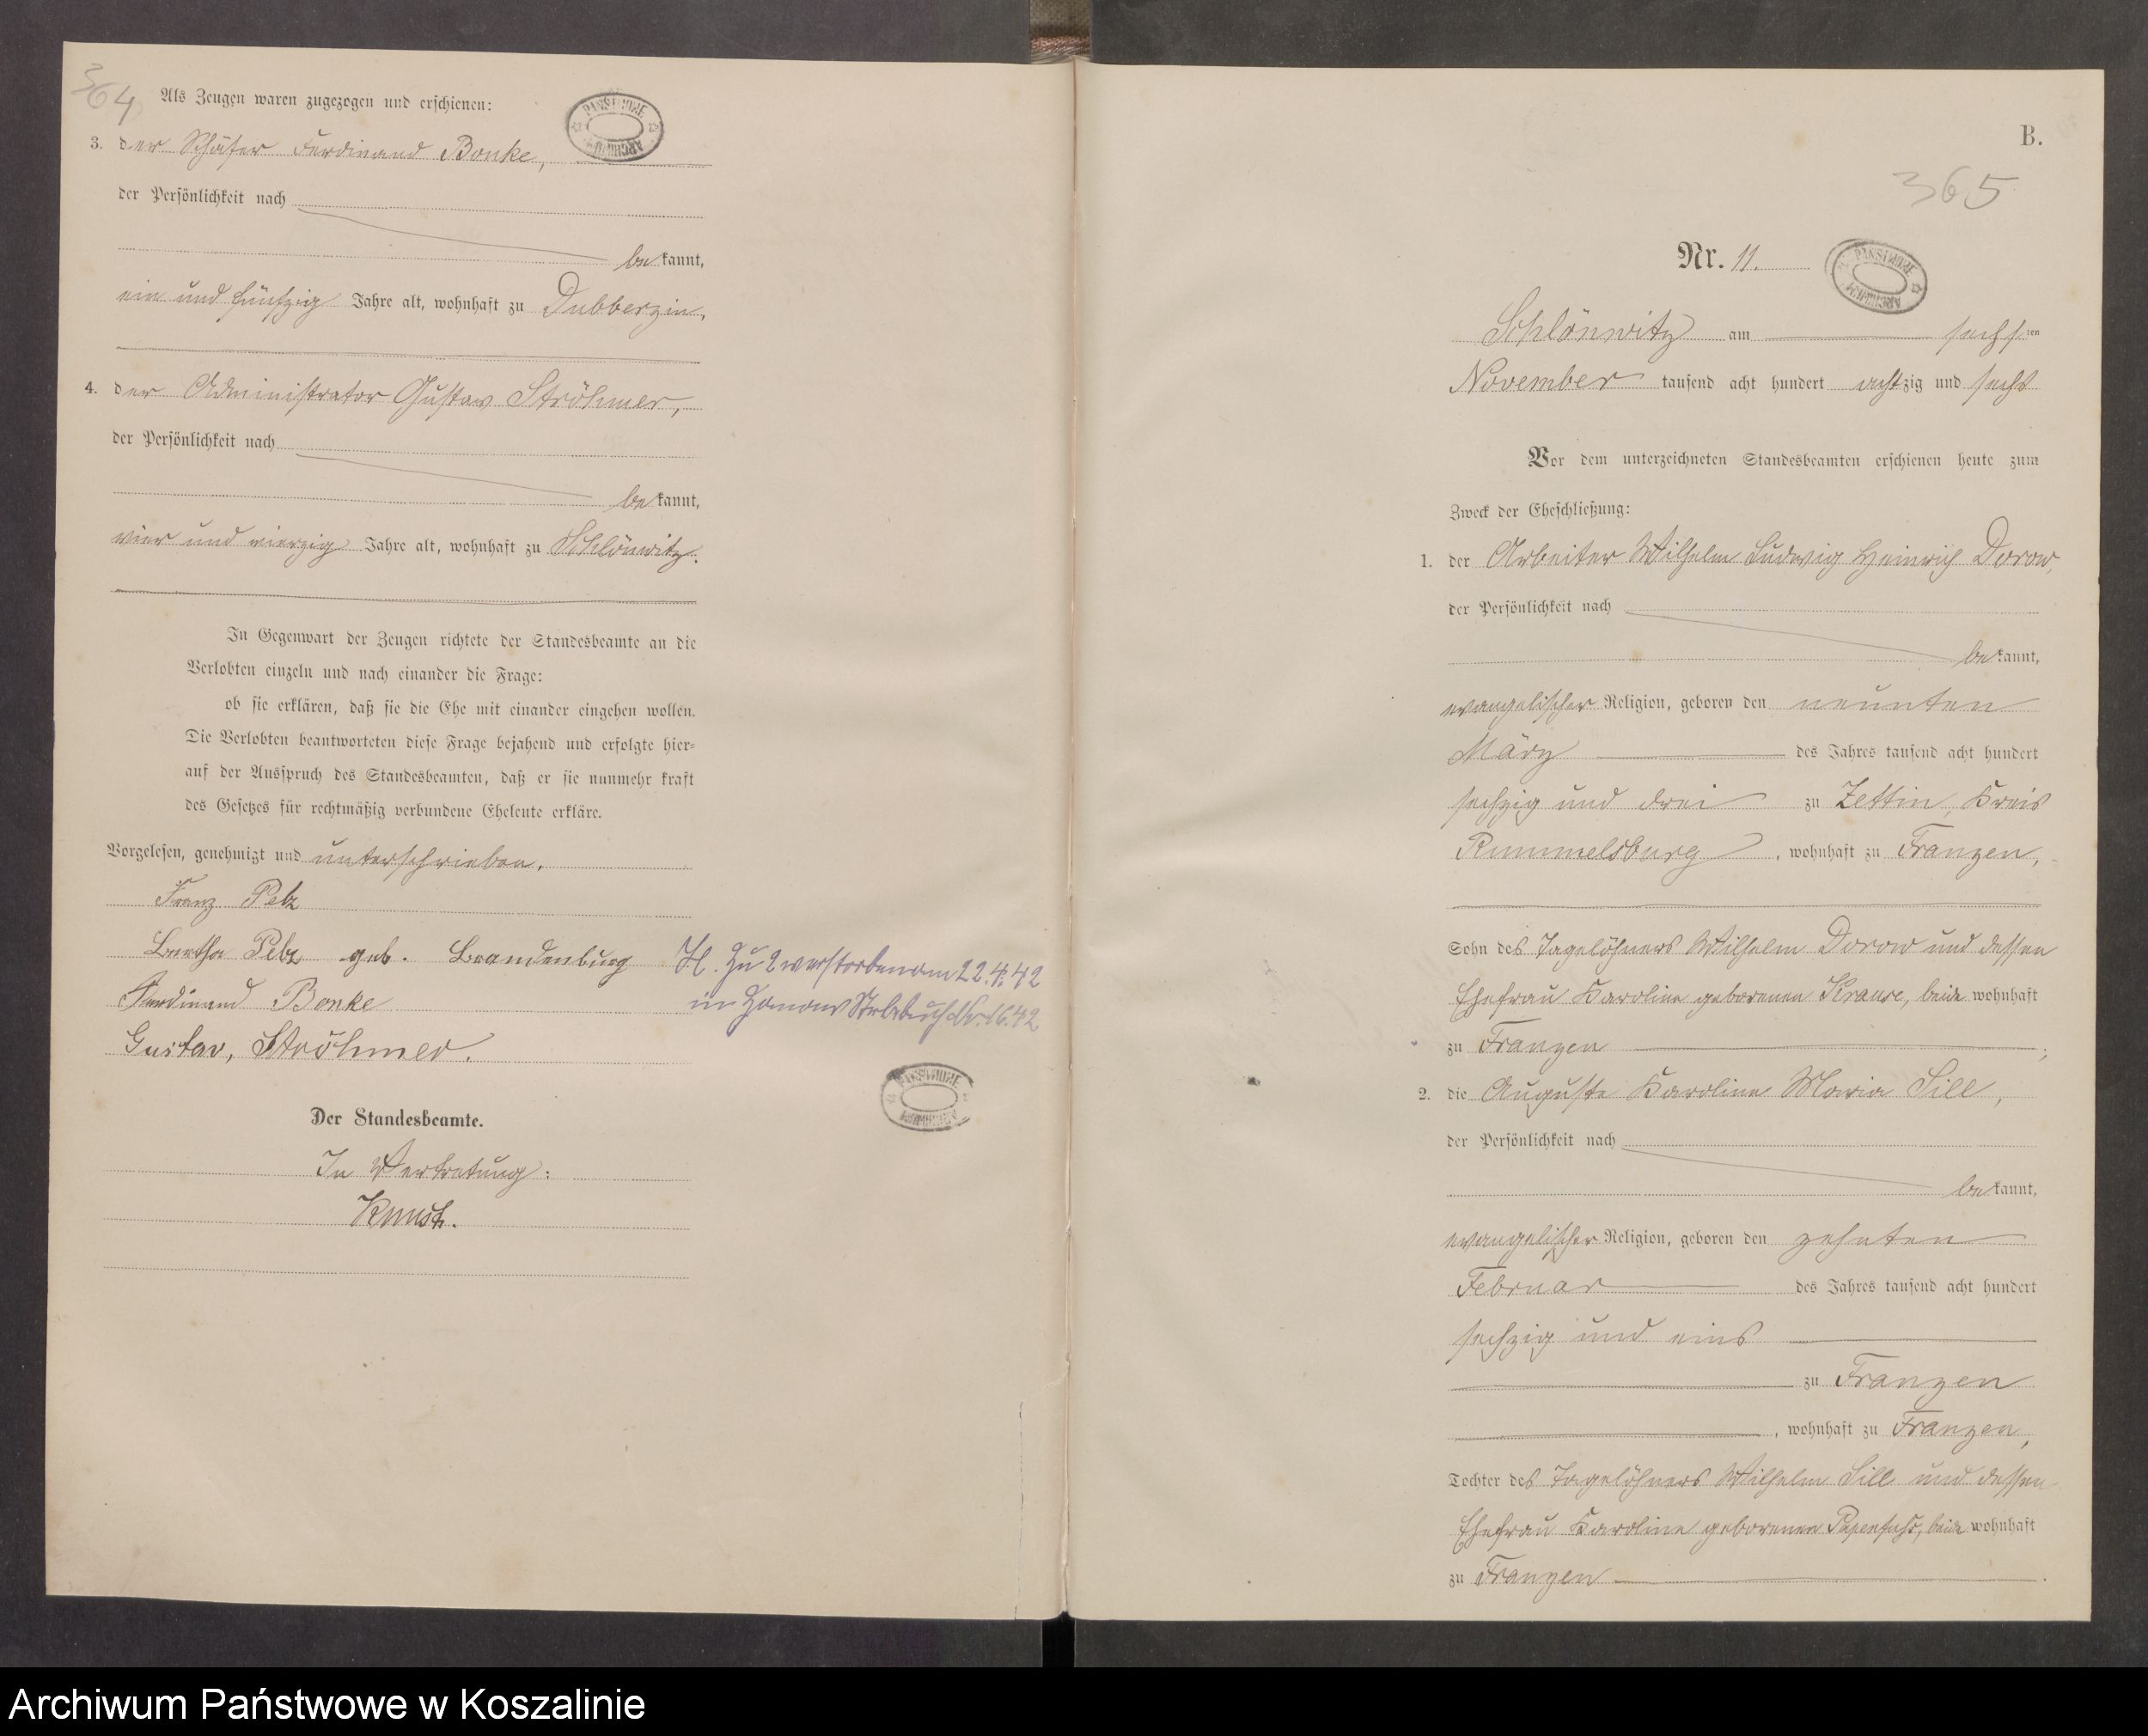 364
Als Zeugen waren zugezogen und erschienen:
3. der Schäfer Ferdinand Bonke,
der Persönlichkeit nach
bekannt,
ein und fünfzig Jahre alt, wohnhaft zu Dubberzin,
4. der Administrator Gustav Ströhmer,
der Persönlichkeit nach
bekannt,
vier und vierzig Jahre alt, wohnhaft zu Schlönwitz.
In Gegenwart der Zeugen richtete der Standesbeamte an die
Verlobten einzeln und nach einander die Frage:
ob sie erklären, daß sie die Ehe mit einander eingehen wollen.
Die Verlobten beantworteten diese Frage bejahend und erfolgte hier=
auf der Ausspruch des Standesbeamten, daß er sie nunmehr kraft
des Gesetzes für rechtmäßig verbundene Eheleute erkläre.
Vorgelesen, genehmigt und unterschrieben.
Franz Pelz
Bertha Pelz geb. Brandenburg
Ferdinand Bonke
Gustav, Ströhmer.
H. Zu 2 verstorben am 22.4.42
in Zanow Sterbbuch Nr. 16.42
Der Standesbeamte.
In Vertretung:
PAŃSTWOWE ARCHIWUM
B.
365
Nr. 11.
PAŃSTWOWE ARCHIWUM
Schlönwitz am sechsten
November tausend acht hundert achtzig und sechs
Vor dem unterzeichneten Standesbeamten erschienen heute zum
Zweck der Eheschließung:
1. der Arbeiter Wilhelm Ludwig Heinrich Dorow,
der Persönlichkeit nach
bekannt,
evangelischer Religion, geboren den neunten
März des Jahres tausend acht hundert
sechzig und drei zu Zettin, Kreis
Rummelsburg, wohnhaft zu Franzen,
Sohn des Tagelöhners Wilhelm Dorow und dessen
Ehefrau Karoline geborenen Krause, beide wohnhaft
zu Franzen;
2. die Auguste Karoline Maria Sill,
der Persönlichkeit nach
bekannt,
evangelischer Religion, geboren den zehnten
Februar des Jahres tausend acht hundert
sechzig und eins
zu Franzen
, wohnhaft zu Franzen,
Tochter des Tagelöhners Wilhelm Sill und dessen
Ehefrau Karoline geborenen Papenfuß, beide wohnhaft
zu Franzen.
Archiwum Państwowe w Koszalinie